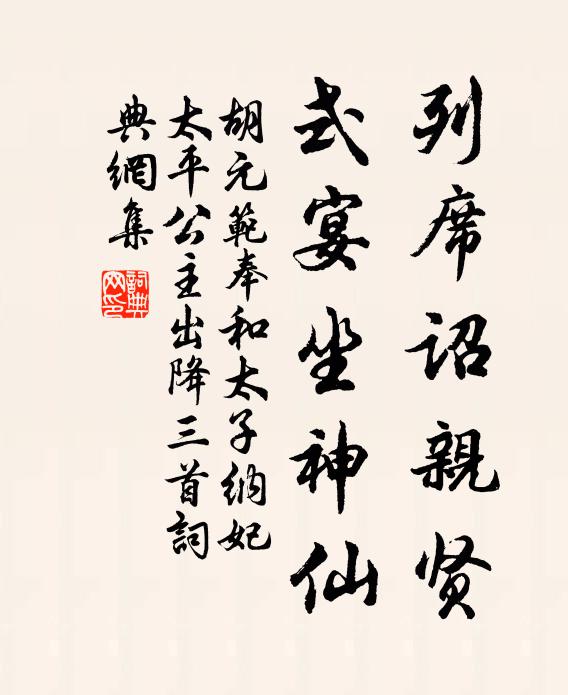 列席诏親贤
式宴坐神仙
胡元範奉和太子纳妃
太平公主出降三首詞
典網集
詞典網印